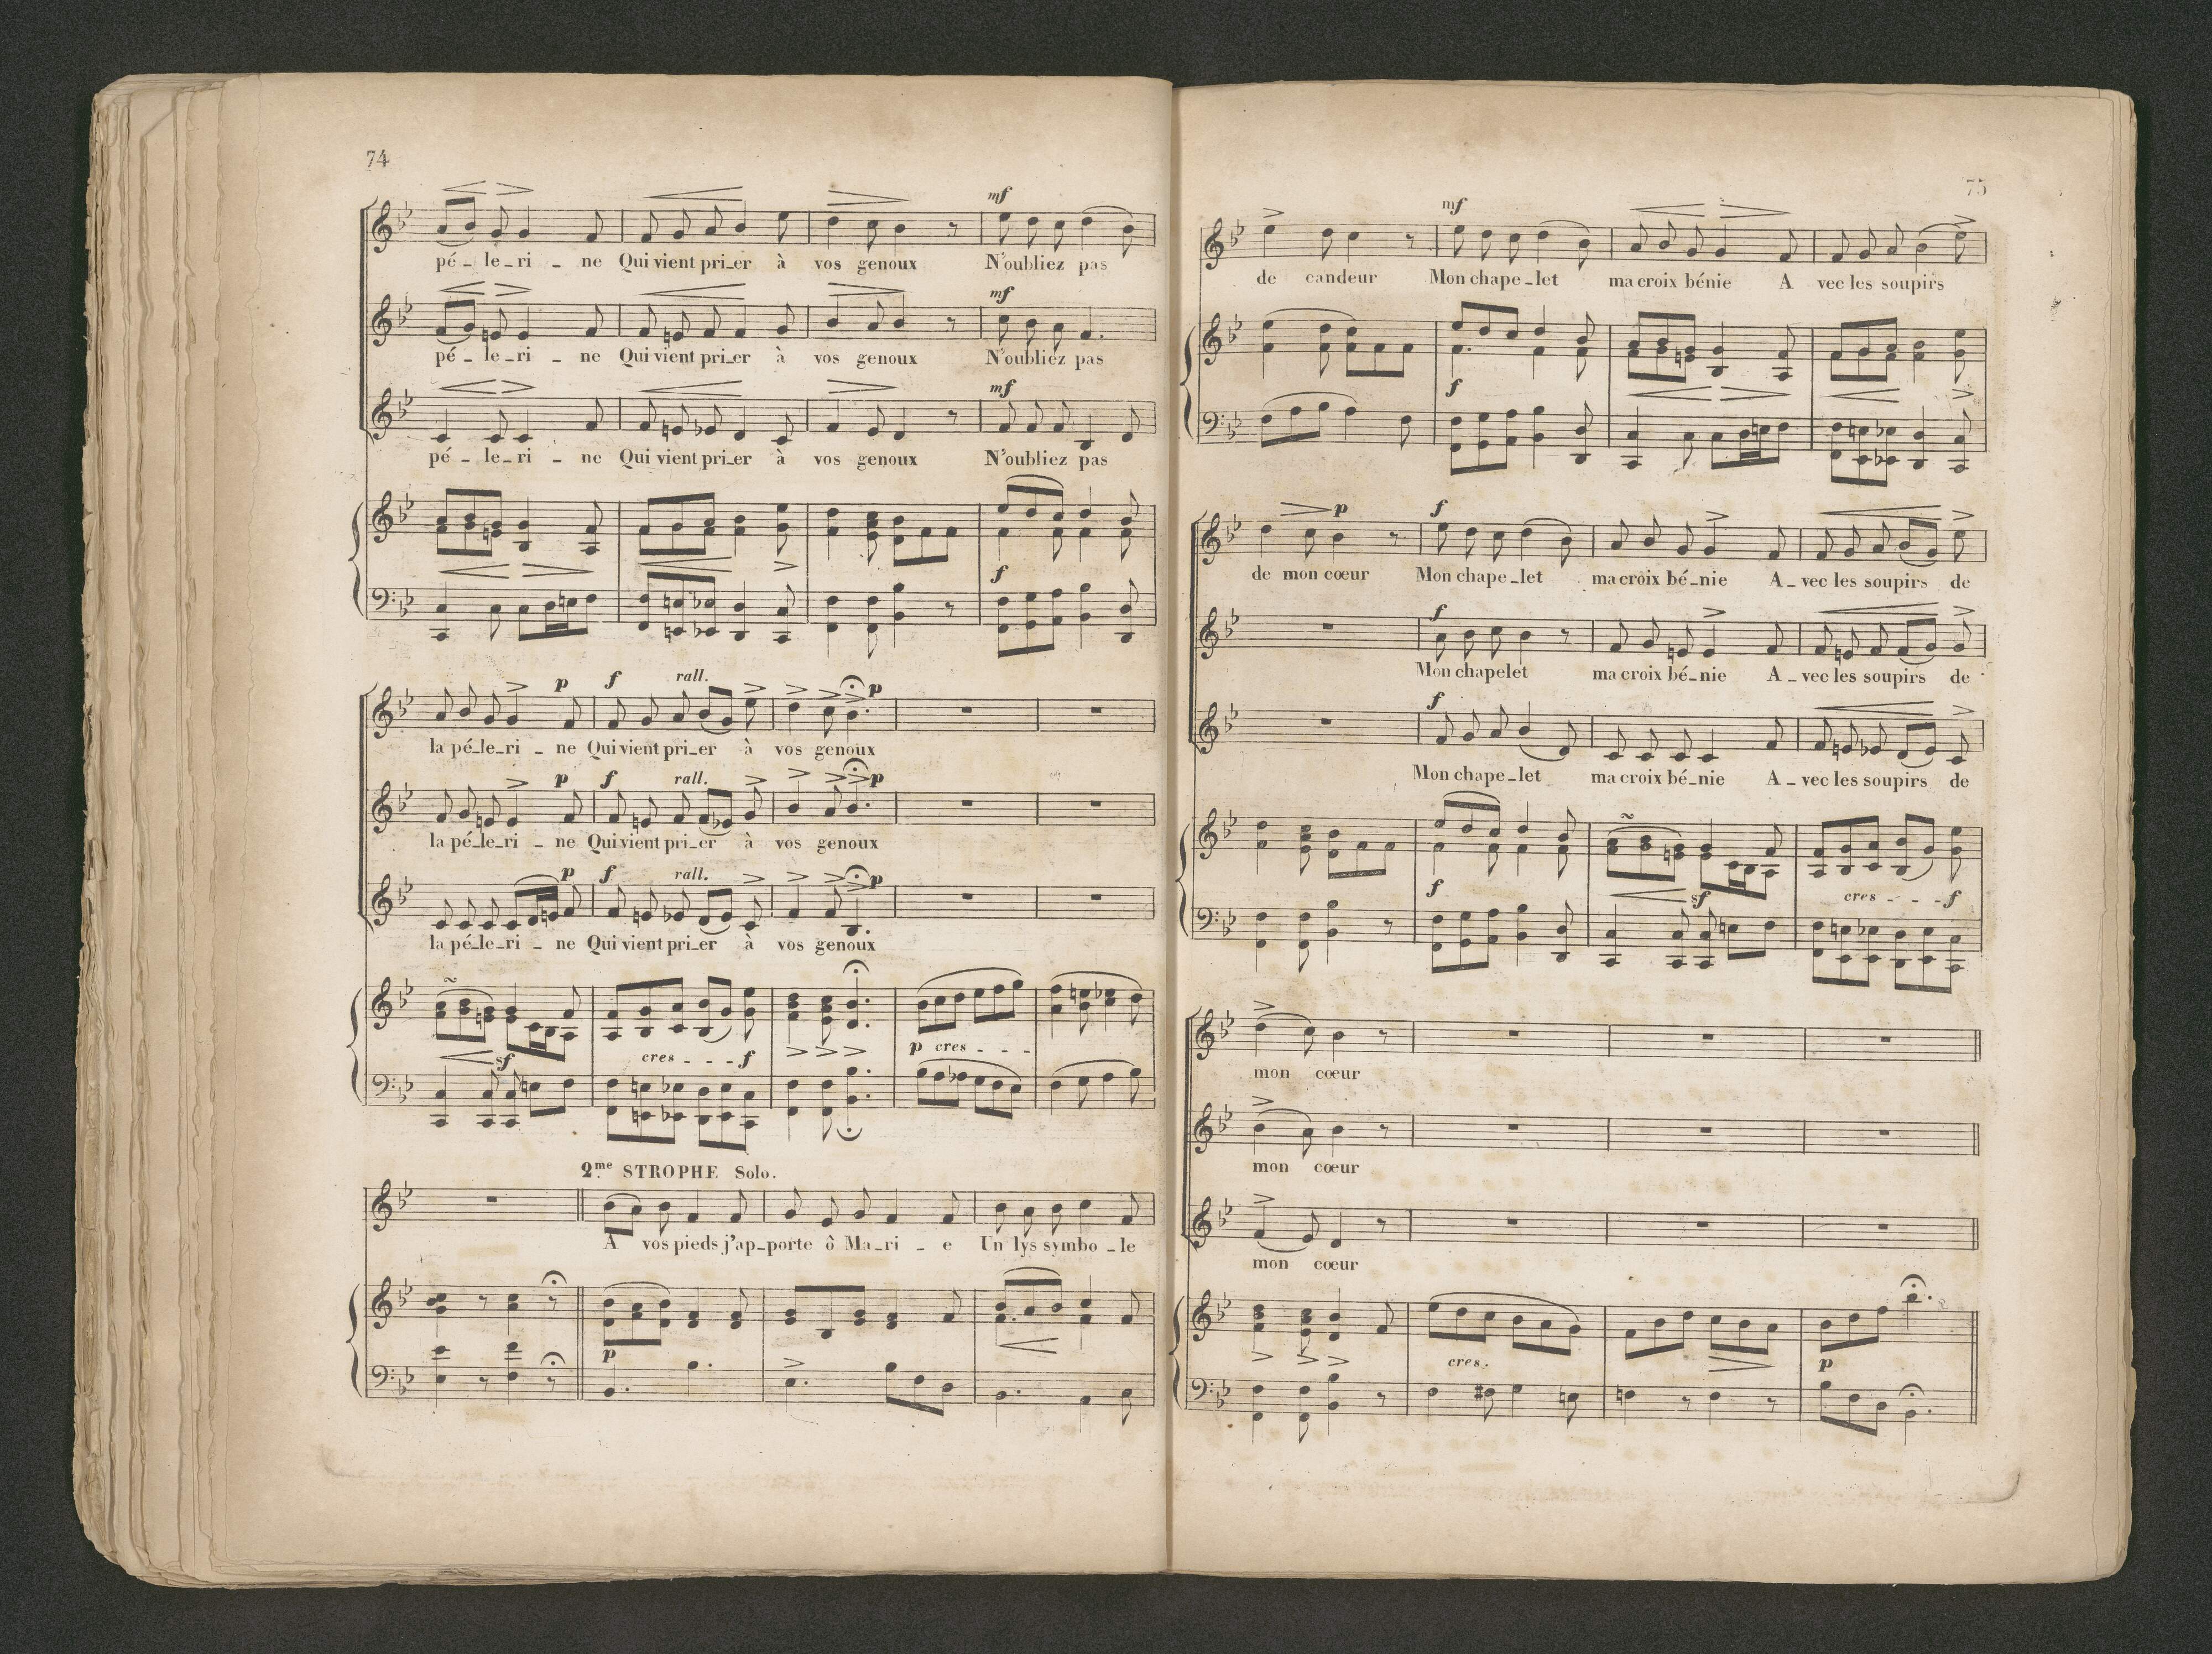 74
mf
pé_le_ri_ne Qui vient pri_er à vos genoux N'oubliez pas
mf
pé_le_ri_ne Qui vient pri_er à vos genoux N'oubliez pas
mf
pé_le_ri_ne Qui vient pri_er à vos genoux N'oubliez pas
f
p f rall. p
la pé_le_ri_ne Qui vient pri_er à vos genoux
p f rall. p
la pé_le_ri_ne Qui vient pri_er à vos genoux
p f rall. p
la pé_le_ri_ne Qui vient pri_er à vos genoux
sf cres - - - f p cres - - -
2.me STROPHE Solo.
A vos pieds j'ap_porte ô Ma_ri_e Un lys symbo_le
p
75
mf
de candeur Mon chape_let ma croix bénie A vec les soupirs
f
p f
de mon cœur Mon chape_let ma croix bé_nie A_vec les soupirs de
f
Mon chapelet ma croix bé_nie A_vec les soupirs de
f
Mon chape_let ma croix bé_nie A_vec les soupirs de
f sf cres - - - f
mon cœur
mon cœur
mon cœur
cres. p